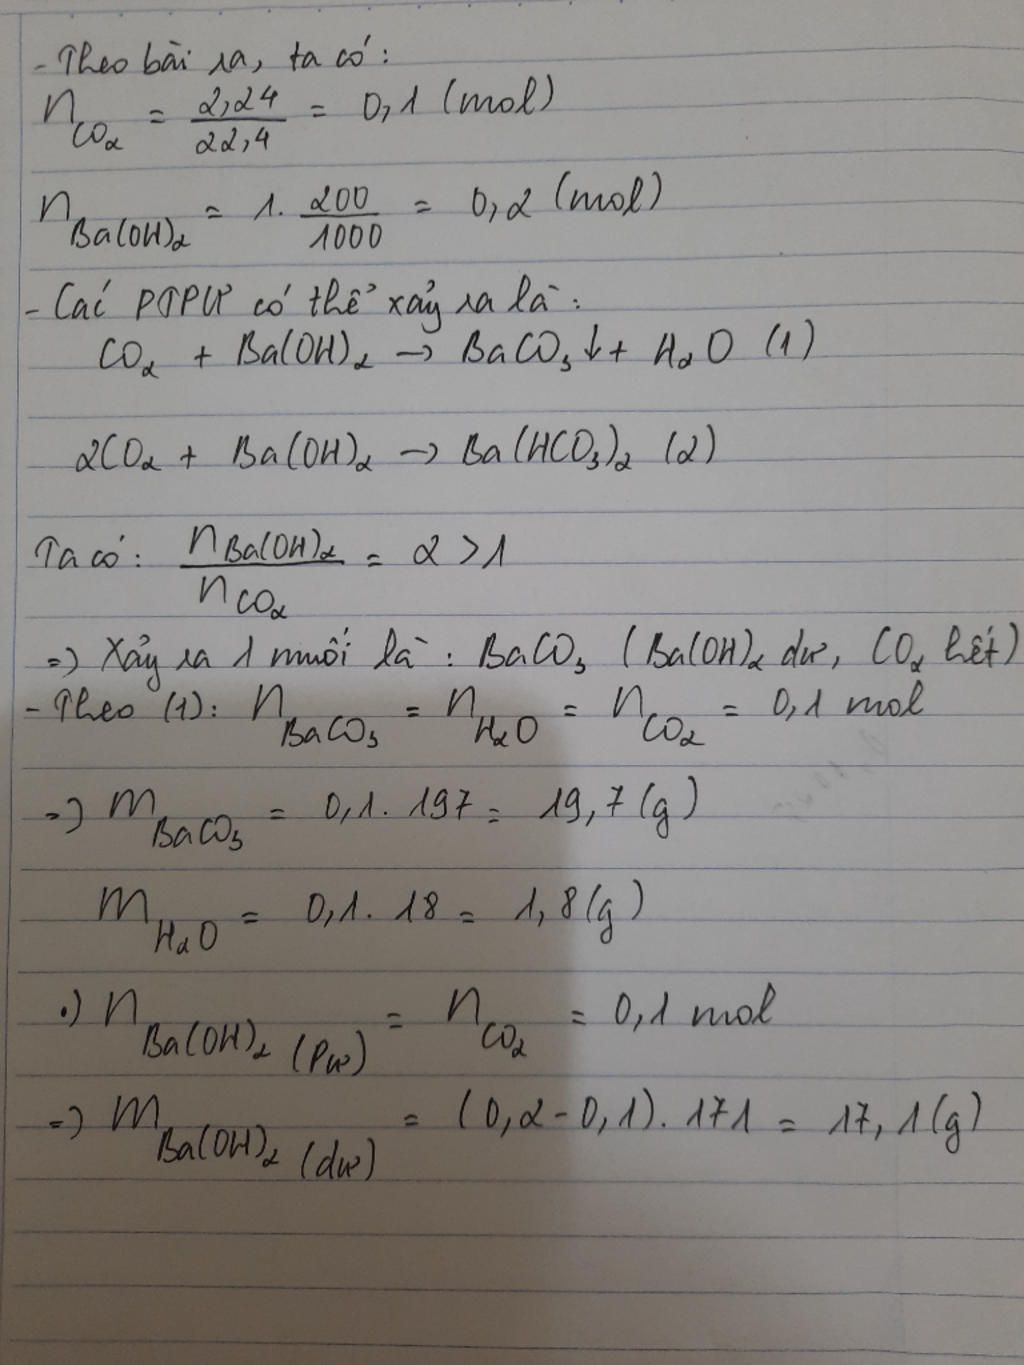 - Theo bài ra, ta có:
n_CO₂ = 2,24/22,4 = 0,1 (mol)
n_Ba(OH)₂ = 1. 200/1000 = 0,2 (mol)
- Các PTPƯ có thể xảy ra là:
CO₂ + Ba(OH)₂ → BaCO₃↓ + H₂O (1)
2CO₂ + Ba(OH)₂ → Ba(HCO₃)₂ (2)
Ta có: n_Ba(OH)₂/n_CO₂ = 2 > 1
=) Xảy ra 1 muối là: BaCO₃ (Ba(OH)₂ dư, CO₂ hết)
- Theo (1): n_BaCO₃ = n_H₂O = n_CO₂ = 0,1 mol
=) m_BaCO₃ = 0,1. 197 = 19,7 (g)
m_H₂O = 0,1. 18 = 1,8 (g)
.) n_Ba(OH)₂ (Pư) = n_CO₂ = 0,1 mol
=) m_Ba(OH)₂ (dư) = (0,2 - 0,1). 171 = 17,1 (g)